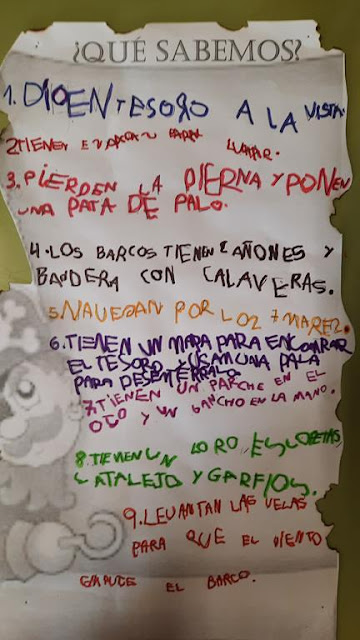 ¿QUÉ SABEMOS?
1. DICEN TESORO A LA VISTA.
2 TIENEN ESPADAS PARA LUHAR.
3. PIERDEN LA PIERNA Y PONEN
UNA PATA DE PALO.
4. LOS BARCOS TIENEN CAÑONES Y
BANDERA CON CALAVERAS.
5. NAVEGAN POR LOZ 7 MAREZ.
6. TIENEN UN MAPA PARA ENCONTRAR
EL TESORO Y USAN UNA PALA
PARA DESENTERRALO.
7. TIENEN UN PARCHE EN EL
OJO Y UN GANCHO EN LA MANO.
8. TIENEN UN LORO, ESCOPETAS
CATALEJO Y GARFIOS.
9. LEVANTAN LAS VELAS
PARA QUE EL VIENTO
EMPUCE EL BARCO.